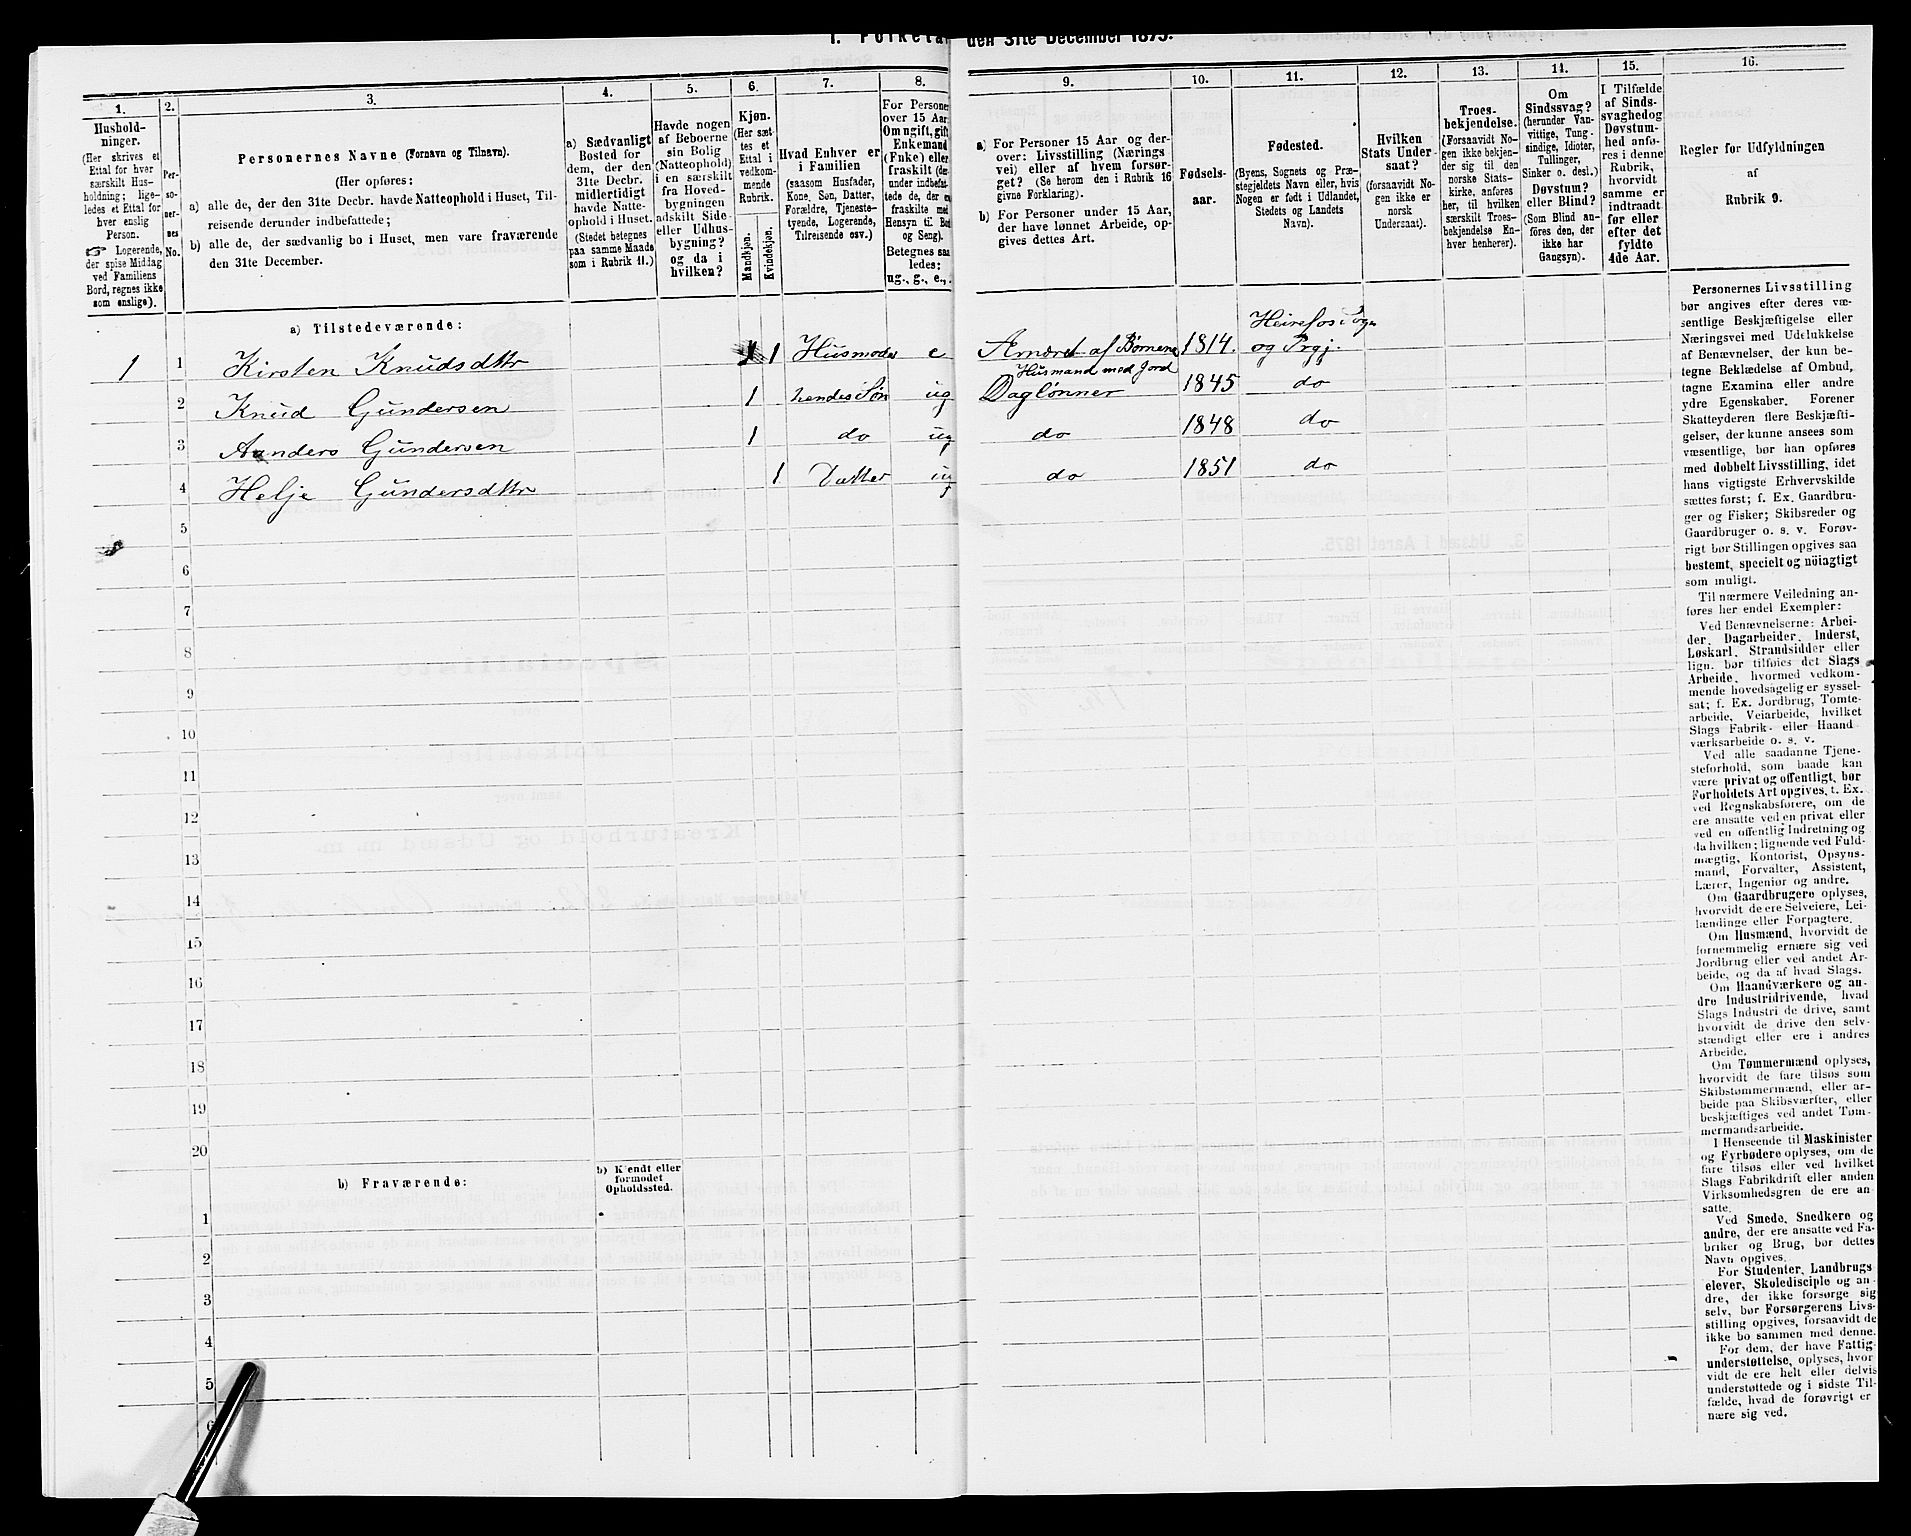 den 31te December 1875.
1.
Hushold-
ninger.
(Her skrives et
Ettal for hver
særskilt Hus-
holdning; lige-
ledes et Ettal for
hver enslig
Person.
☞ Logerende,
der spise Middag
ved Familiens
Bord, regnes ikke
som enslige).
2.
Per-
so-
ner-
nes
No.
3.
Personernes Navne (Fornavn og Tilnavn).
(Her opføres:
a) alle de, der den 31te Decbr. havde Natteophold i Huset, Til-
reisende derunder indbefattede;
b) alle de, der sædvanlig bo i Huset, men vare fraværende
den 31te December.
4.
a) Sædvanligt
Bosted for
dem, der den
31te Decbr.
midlertidigt
havde Natte-
ophold i Huset.
(Stedet betegnes
paa samme Maade
som i Rubrik 11.)
5.
Havde nogen
af Beboerne
sin Bolig
(Natteophold)
i en særskilt
fra Hoved-
bygningen
adskilt Side-
eller Udhus-
bygning?
og da i
hvilken?
6.
Kjøn.
(Her sæt-
tes et
Ettal i
vedkom-
mende
Rubrik.
Mandkjøn.
Kvindekjøn.
7.
Hvad Enhver er
i Familien
(saasom Husfader,
Kone, Søn, Datter,
Forældre, Tjeneste-
tyende, Logerende,
Tilreisende osv.)
8.
For Personer
over 15 Aar:
Om ugift, gift,
Enkemand
(Enke) eller
fraskilt
fraskilte med
Hensyn til Bord
og Seng).
Betegnes saa-
ledes:
ug., g., e.,
9.
a) For Personer 15 Aar og der-
over: Livsstilling (Nærings
vei) eller af hvem forsør-
get? (Se herom den i Rubrik 16
givne Forklaring).
b) For Personer under 15 Aar,
der have lønnet Arbeide, op-
gives dettes Art.
10.
Fødsels-
aar.
11.
Fødested.
(Byens, Sognets og Præ-
stegjeldets Navn eller, hvis
Nogen er født i Udlandet,
Stedets og Landets
Navn).
12.
Hvilken
Stats Under-
saat?
(forsaavidt No-
gen ikke er
norsk
Undersaat).
13.
Troes-
bekjendelse.
(Forsaavidt No-
gen ikke bekjen-
der sig til den
norske Stats-
kirke, anføres
her, til hvilken
særskilt Troes-
bekjendelse En-
hver henhører).
14.
Om
Sindssvag?
(herunder Van-
vittige, Tung-
sindige, Idioter,
Tullinger,
Sinker o. desl.)
Døvstum?
eller Blind?
(Som Blind an-
føres den, der
ikke har
Gangsyn).
15.
I Tilfælde
af Sinds-
svaghed og
Døvstum-
hed anfø-
res i denne
Rubrik,
hvorvidt
samme er
indtraadt
før eller
efter det
fyldte
4de Aar.
16.
Regler for Udfyldningen
af
Rubrik 9.
a) Tilstedeværende:
1 1 Kirsten Knudsdttr 1 Husmoder e Ernæret af Børnene 1814. Heirefos Sogn og Prgj.
2 Knud Gundersen 1 hendes Søn ug Husmand med Jord Daglønner 1845 do
3 Aanders Gundersen 1 do ug do 1848 do
4 Helje Gundersdttr 1 Datter ug do 1851 do
5
6
7
8
9
10
11
12
13
14
15
16
17
18
19
20
b) Fraværende:
b) Kjendt eller
formodet
Opholdssted.
1
2
3
4
5
6
Personernes Livsstilling
bør angives efter deres væ-
sentlige Beskjæftigelse eller
Næringsvei med Udelukkelse
af Benævnelser, der kun be-
tegne Beklædelse af Ombud,
tagne Examina eller andre
ydre Egenskaber. Forener
Skatteyderen flere Beskjæfti-
gelser, der kunne ansees som
væsentlige, bør han opføres
med dobbelt Livsstilling, idet
hans vigtigste Erhvervskilde
sættes først; f. Ex. Gaardbru-
ger og Fisker; Skibsreder og
Gaardbruger o. s. v. Forøv-
rigt bør Stillingen opgives saa
bestemt, specielt og nöiagtigt
som muligt.
Til nærmere Veiledning an-
føres her endel Exempler:
Ved Benævnelserne: Arbei-
der, Dagarbeider, Inderst,
Løskarl, Strandsidder eller
lign. bør tilføies det Slags
Arbeide, hvormed vedkom-
mende hovedsagelig er syssel-
sat; f. Ex. Jordbrug, Tomte-
arbeide, Veiarbeide, hvilket
Slags Fabrik- eller Haand
værksarbeide o. s. v.
Ved alle saadanne Tjene-
steforhold, som baade kan
være privat og offentligt, bør
Forholdets Art opgives, t. Ex.
ved Regnskabsførere, om de
ere ansatte ved en privat eller
ved en offentlig Indretning og
da hvilken; lignende ved Fuld-
mægtig, Kontorist, Opsyns-
mand, Forvalter, Assistent,
Lærer, Ingeniør og andre.
Om Gaardbrugere oplyses,
hvorvidt de ere Selveiere, Lei-
lændinge eller Forpagtere.
Om Husmænd, hvorvidt de
fornemmelig ernære sig ved
Jordbrug eller ved andet Ar-
beide, og da af hvad Slags.
Om Haandværkere og an-
dre Industridrivende, hvad
Slags Industri de drive, samt
hvorvidt de drive den selv-
stændigt eller ere i andres
Arbeide.
Om Tømmermænd oplyses,
hvorvidt de fare tilsøs som
Skibstømmermænd, eller ar-
beide paa Skibsværfter, eller
beskjæftiges ved andet Tøm-
mermandsarbeide.
I Henseende til Maskinister
og Fyrbødere oplyses, om de
fare tilsøs eller ved hvilket
Slags Fabrikdrift eller anden
Virksomhedsgren de ere an-
satte.
Ved Smede, Snedkere og
andre, der ere ansatte ved Fa-
briker og Brug, bør dettes
Navn opgives.
For Studenter, Landbrugs
elever, Skoledisciple og an-
dre, der ikke forsørge sig
selv, bør Forsørgerens Livs-
stilling opgives, forsaavidt de
ikke bo sammen med denne.
For dem, der have Fattig-
understøttelse, oplyses, hvor
vidt de ere helt eller delvis
understøttede og i sidste Til-
fælde, hvad de forøvrigt er
nære sig ved.